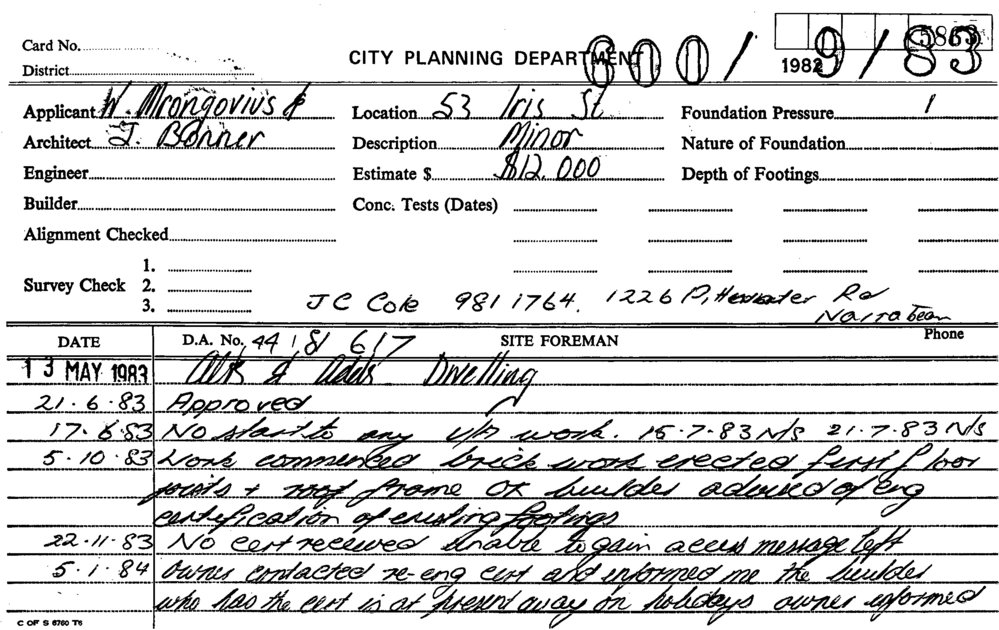 5863
Card No.
CITY PLANNING DEPARTMENT 600/9/83
1982
District
Applicant W. Mrongovius & Location 53 Iris St Foundation Pressure
Architect J. Bonner Description Minor Nature of Foundation
Engineer Estimate $ $12.000 Depth of Footings
Builder Conc. Tests (Dates)
Alignment Checked
1.
Survey Check 2.
3. J C Cole 981 1764. 1226 Pittwater Rd
Narrabeen
DATE D.A. No. 44 81 617 SITE FOREMAN Phone
13 MAY 1983 Alts & Adds Dwelling
21.6.83 Approved
17.6.83 No start to any work. 15-7-83 N/s 21.7.83 N/s
5.10.83 Work commenced brick work erected first floor
joists + roof frame OK builder advised of eng
certification of existing footings
22.11.83 No cert received unable to gain access message left
5.1.84 owner contacted re-eng cert and informed me the builder
who has the cert is at present away on holidays owner informed
C OF S 6760 T6